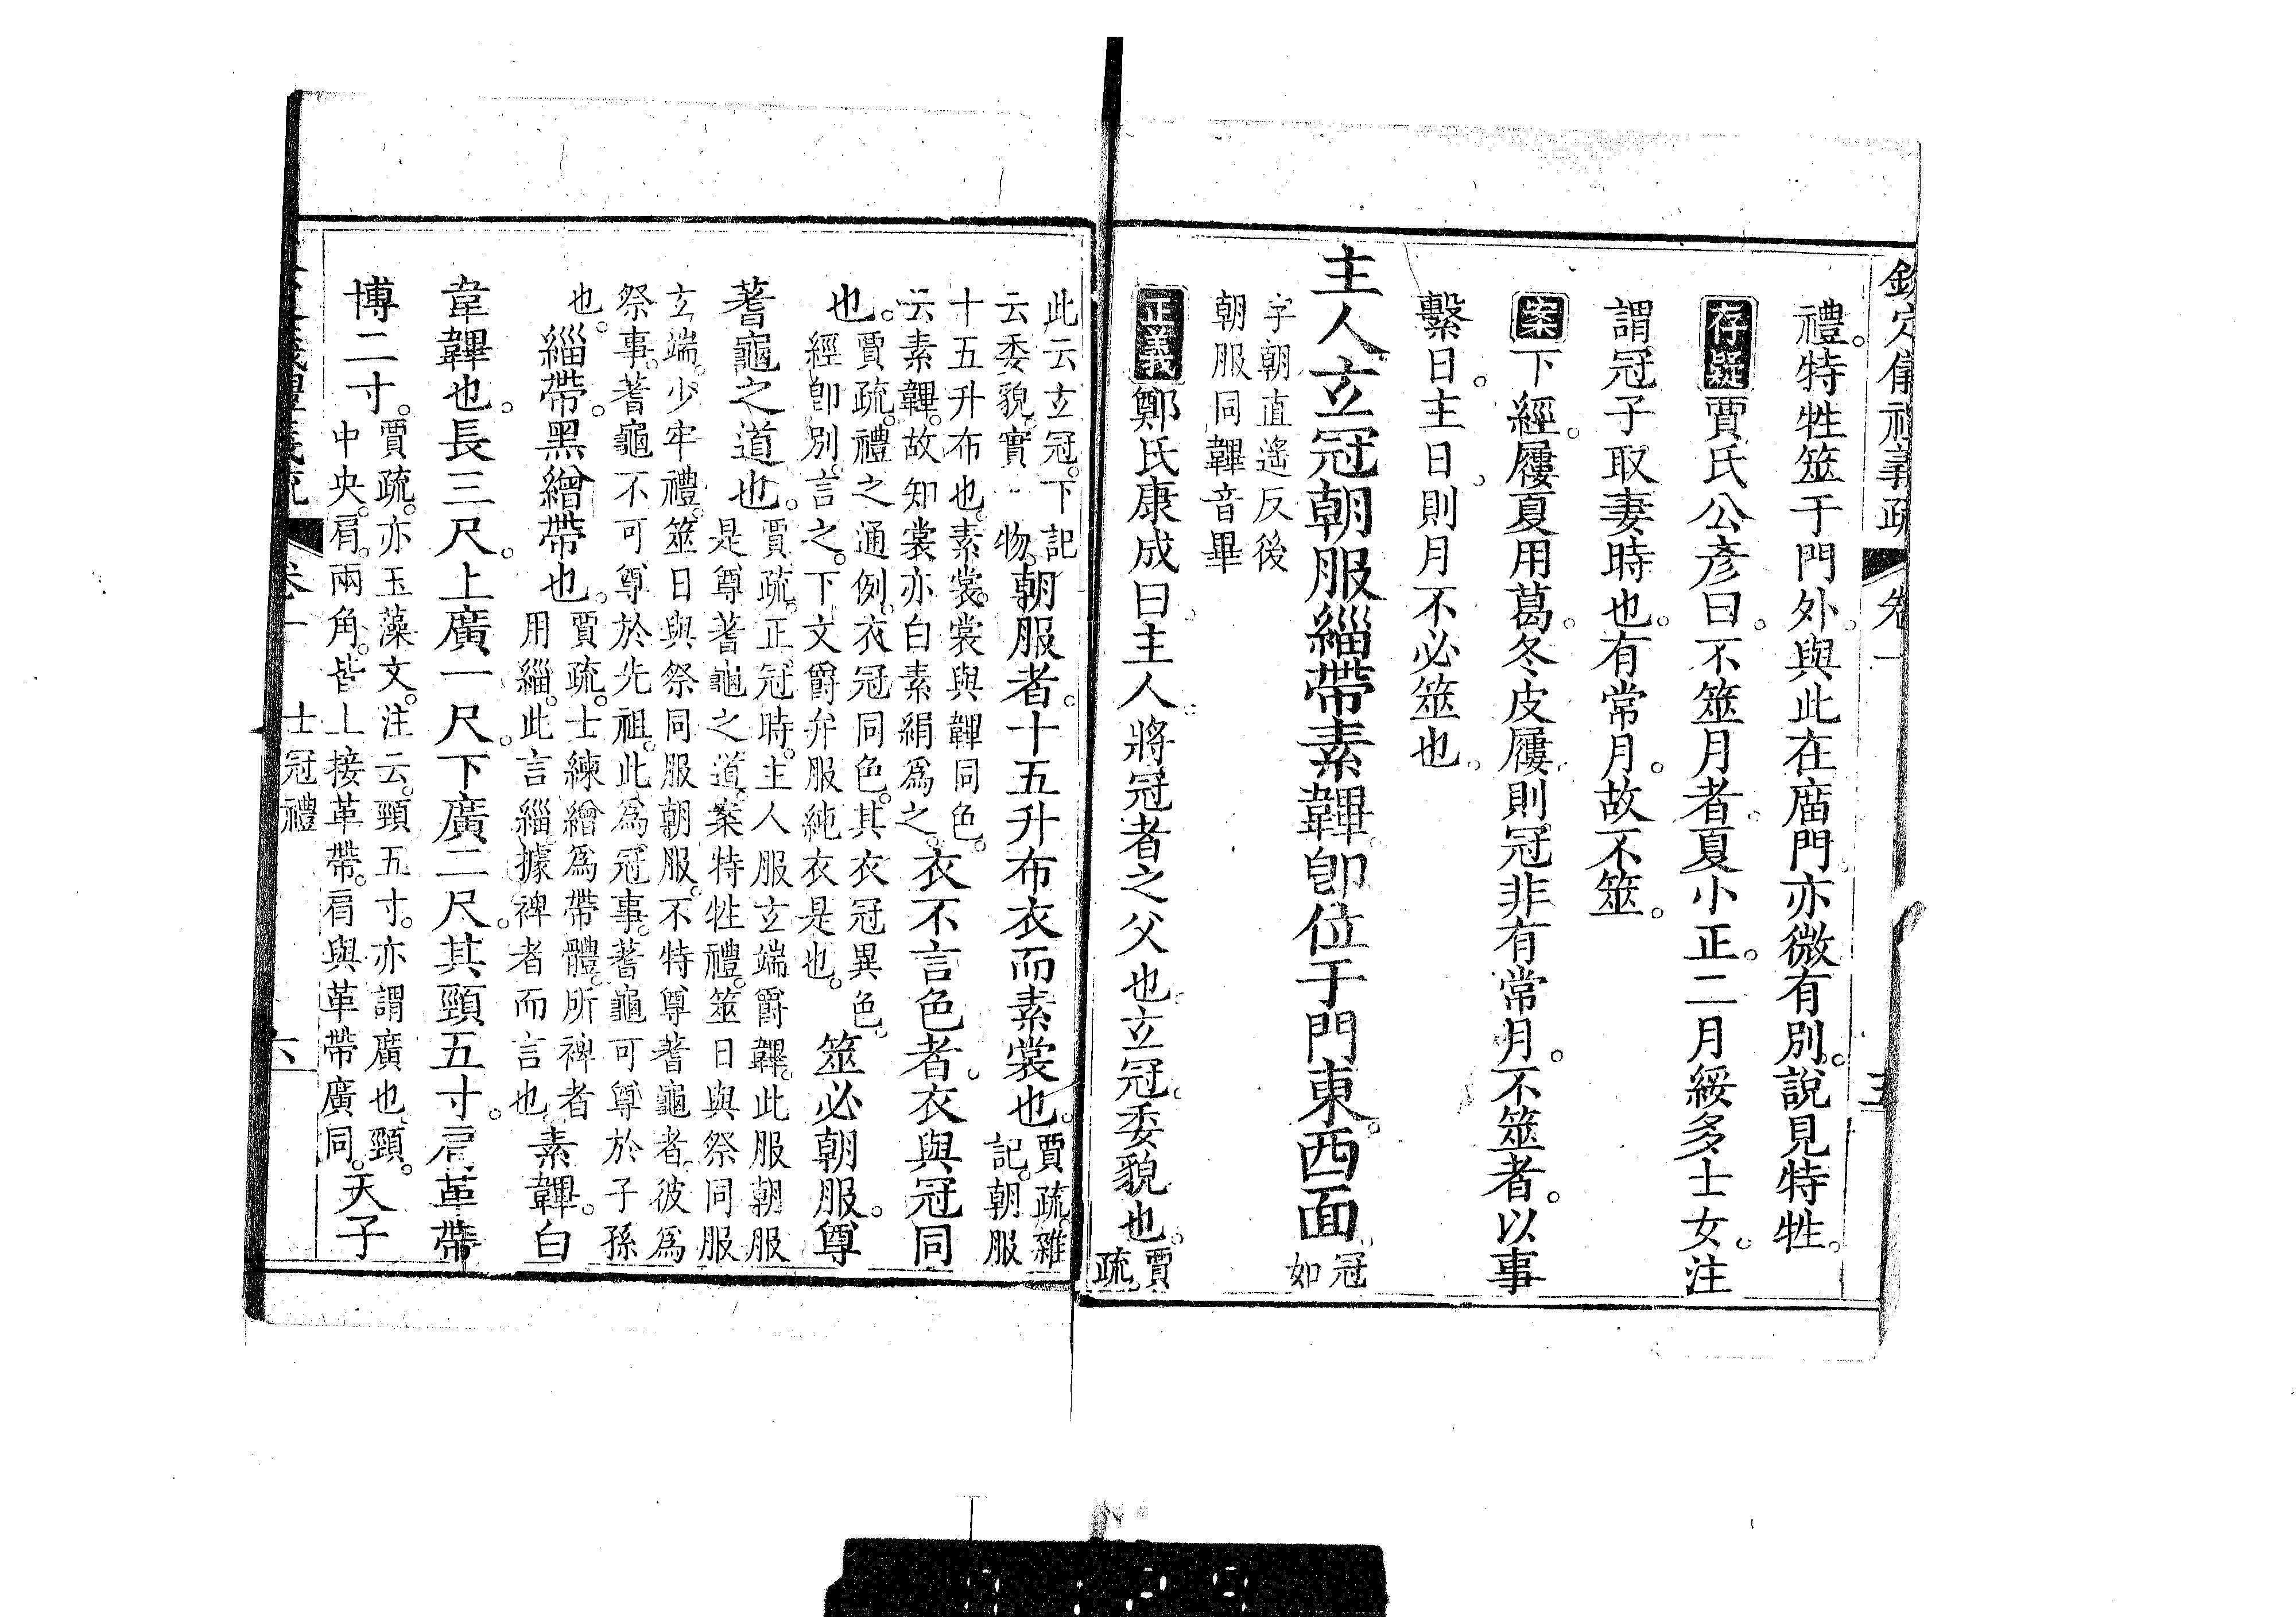 欽定儀禮義疏 卷一
禮。特牲筮于門外。與此在庿門。亦微有別。說見特牲。
存疑 賈氏公彥曰。不筮月者。夏小正。二月綏多士女。注
謂冠子取妻時也。有常月。故不筮。
案 下經。屨夏用葛。冬皮屨。則冠非有常月。不筮者。以事
繫日。主日。則月不必筮也。
主人玄冠朝服緇帶素韠卽位于門東西面。冠如
字朝直遙反後
朝服同韠音畢
正義 鄭氏康成曰。主人。將冠者之父也。玄冠。委貌也。賈疏
此云玄冠。下記
云委貌。實 物。朝服者。十五升布衣而素裳也。賈疏。雜
記。朝服
十五升布也。素裳。裳與韠同色。
云素韠。故知裳亦白素絹爲之。衣不言色者。衣與冠同
也。賈疏。禮之通例。衣冠同色。其衣冠異色。
經卽別言之。下文爵弁服純衣是也。筮必朝服。尊
蓍龜之道也。賈疏。正冠時。主人服玄端爵韠。此服朝服
是尊蓍龜之道。案特牲禮。筮日與祭同服
玄端。少牢禮。筮日與祭同服朝服。不特尊蓍龜者。彼爲
祭事。蓍龜不可尊於先祖。此爲冠事。蓍龜可尊於子孫
也。緇帶。黑繒帶也。賈疏。士練繒爲帶體。所裨者
用緇。此言緇。據裨者而言也。素韠。白
韋韠也。長三尺。上廣一尺。下廣二尺。其頸五寸。肩革帶
博二寸。賈疏。亦玉藻文。注云。頸五寸。亦謂廣也。頸。
中央。肩。兩角。皆上接革帶。肩與革帶廣同。天子
卷一 士冠禮 六